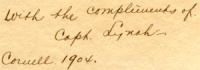 With the compliments of
Capt. Lynah
Cornell 1904.